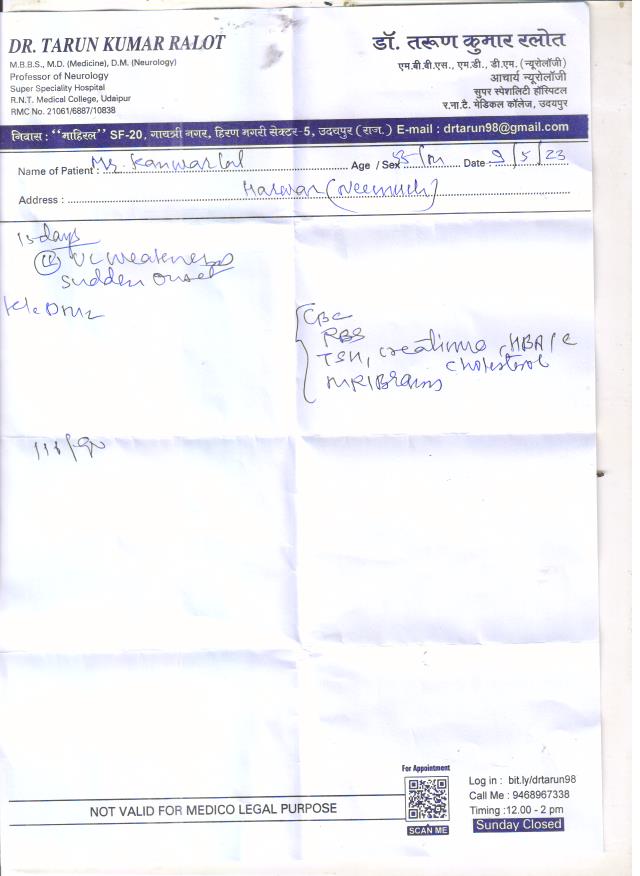 DR. TARUN KUMAR RALOT
M.B.B.S., M.D. (Medicine), D.M. (Neurology)
Professor of Neurology
Super Speciality Hospital
R.N.T. Medical College, Udaipur
RMC No. 21061/6887/10838
डॉ. तरूण कुमार रलोत
एम.बी.बी.एस., एम.डी., डी.एम. (न्यूरोलॉजी)
आचार्य न्यूरोलॉजी
सुपर स्पेशलिटी हॉस्पिटल
र.ना.टै. मेडिकल कॉलेज, उदयपुर
निवास : "माहिरल" SF-20, गायत्री नगर, हिरण मगरी सेक्टर-5, उदयपुर (राज.) E-mail : drtarun98@gmail.com
Name of Patient : Mr. Kanwarlal Age / Sex /m Date 9/5/23
Address : (Neemuch)
15 days
weakness
sudden onset
K/c DM2
CBC
RBS
TSH, creatinine, HBA1C
cholesterol
MRI Brain
NOT VALID FOR MEDICO LEGAL PURPOSE
For Appointment
SCAN ME
Log in : bit.ly/drtarun98
Call Me : 9468967338
Timing :12.00 - 2 pm
Sunday Closed